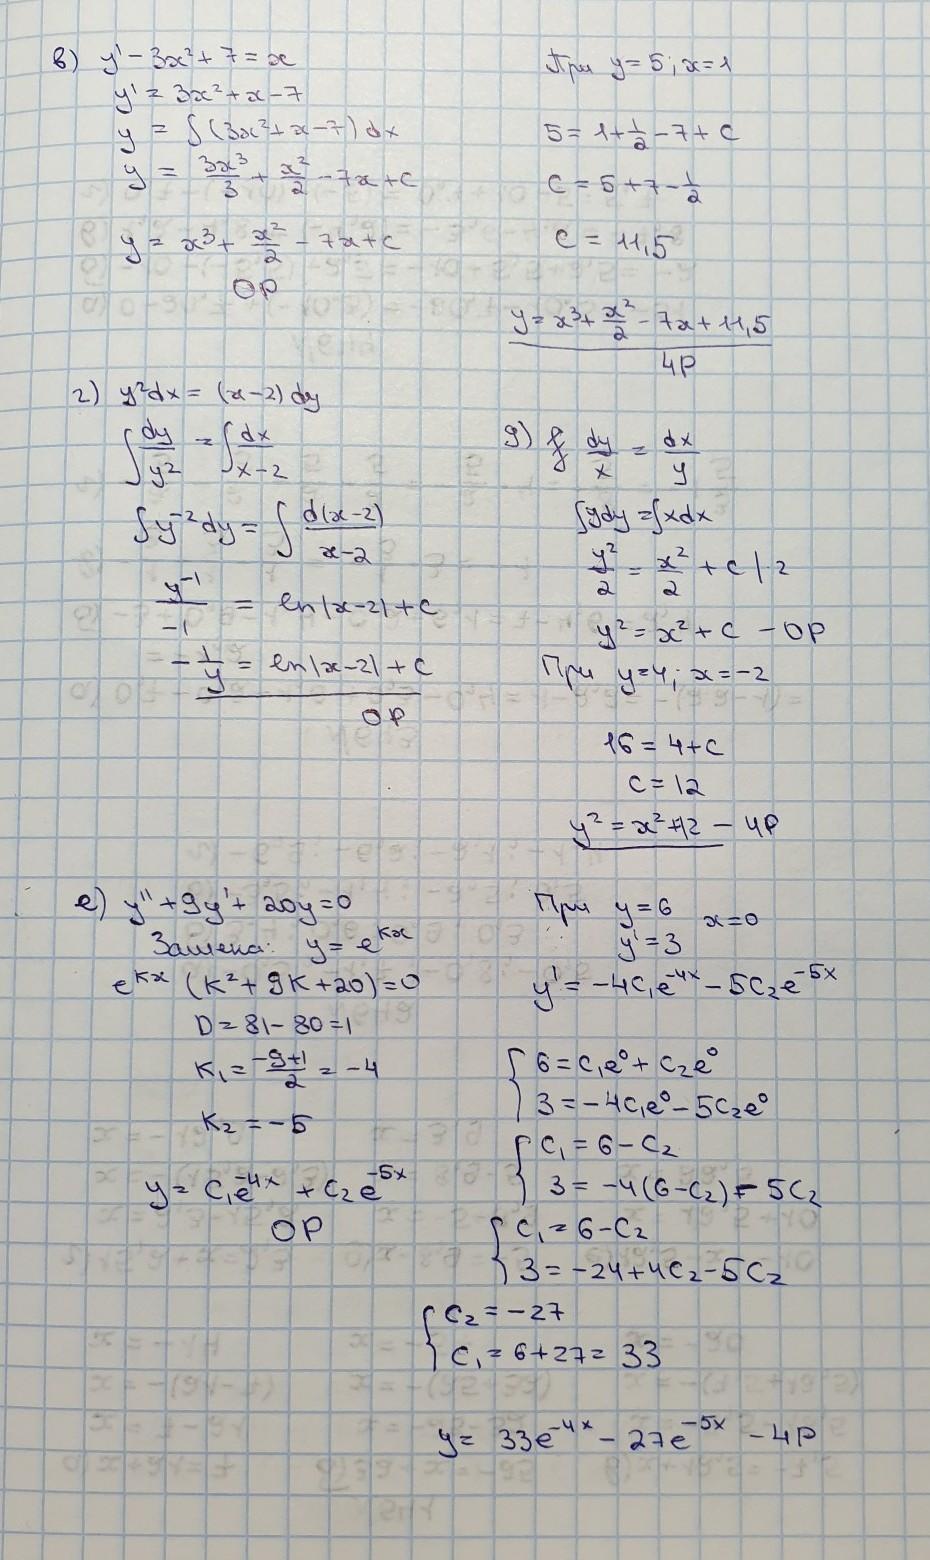 в) y' - 3x² + 7 = x
y' = 3x² + x - 7
y = ∫(3x² + x - 7)dx
y = 3x³/3 + x²/2 - 7x + c
y = x³ + x²/2 - 7x + c
ОР
При y = 5; x = 1
5 = 1 + 1/2 - 7 + c
c = 5 + 7 - 1/2
c = 11,5
y = x³ + x²/2 - 7x + 11,5
ЧР
г) y²dx = (x - 2)dy
∫dy/y² = ∫dx/x-2
∫y⁻²dy = ∫d(x-2)/x-2
y⁻¹/-1 = ln|x-2| + c
-1/y = ln|x-2| + c
ОР
д) dy/x = dx/y
∫ydy = ∫xdx
y²/2 = x²/2 + c |·2
y² = x² + c - ОР
При y = 4; x = -2
16 = 4 + c
c = 12
y² = x² + 12 - ЧР
е) y'' + 9y' + 20y = 0
Замена: y = e^kx
e^kx (k² + 9k + 20) = 0
D = 81 - 80 = 1
k₁ = -9+1/2 = -4
k₂ = -5
y = c₁e^-4x + c₂e^-5x
ОР
При y = 6 x = 0
y' = 3
y' = -4c₁e^-4x - 5c₂e^-5x
{ 6 = c₁e⁰ + c₂e⁰
3 = -4c₁e⁰ - 5c₂e⁰
{ c₁ = 6 - c₂
3 = -4(6 - c₂) - 5c₂
{ c₁ = 6 - c₂
3 = -24 + 4c₂ - 5c₂
{ c₂ = -27
c₁ = 6 + 27 = 33
y = 33e^-4x - 27e^-5x - ЧР